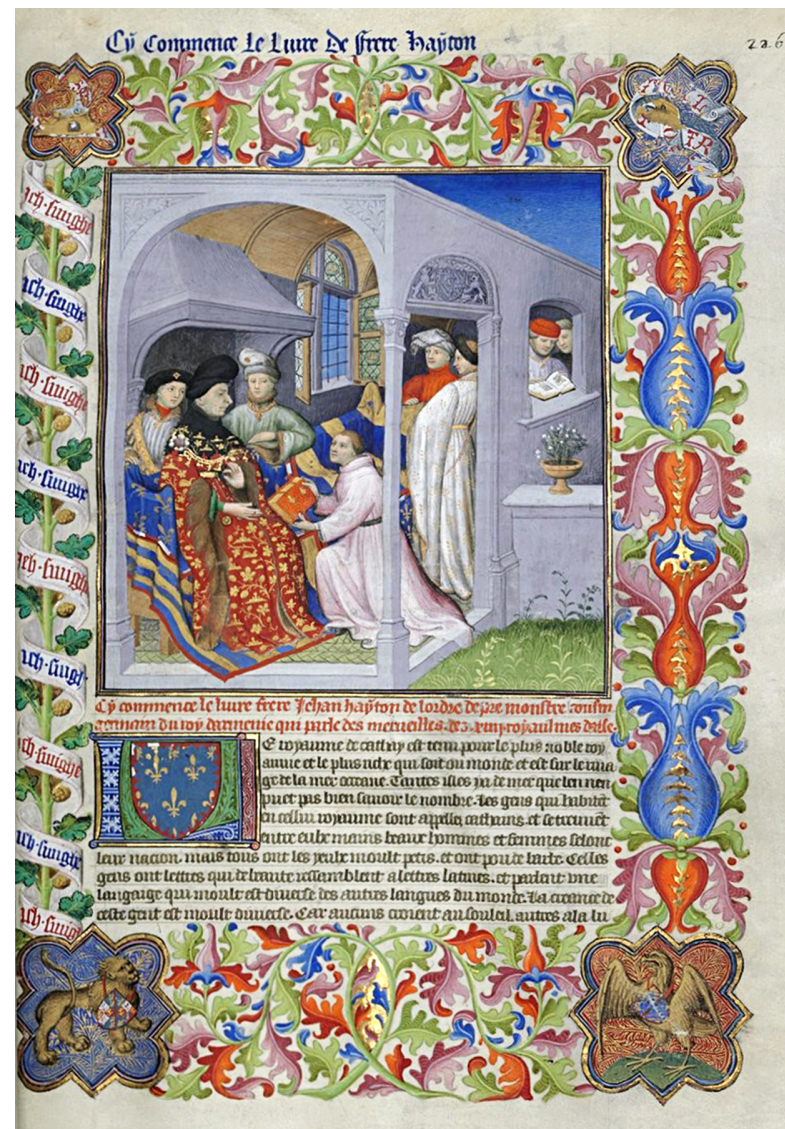 Cy Commence le Livre De frere hayton
226
ich·suighe
ich·suighe
ich·suighe
ich·suighe
ich·suigh
ich·suigh
ich·suighe
ich·suighe
ich·suig
Cy commence le livre frere Jehan hayton de lordre de pre monstre cousin
germain du roy darmenie qui parle des merveilles des xiiij royaulmes dasie
E royaume de cathay est tenu pour le plus noble roy
aume et le plus riche qui soit ou monde et est sur le riva
ge de la mer occeane. Tantes isles y a de mer que len nen
puet pas bien savoir le nombre. Les gens qui habitent
en cellui royaume sont appellez cathains. et se treuvent
entre eulx mains beaux hommes et femmes selonc
leur nacion. mais tous ont les yeulx moult petis. et ont pou de barbe. Celles
gens ont lettres qui de beaute ressamblent a lettres latines. et parlent une
langaige qui moult est diverse des autres langues du monde. La creance de
ceste gent est moult diverse. Car aucuns croient au souleil. autres a la lu